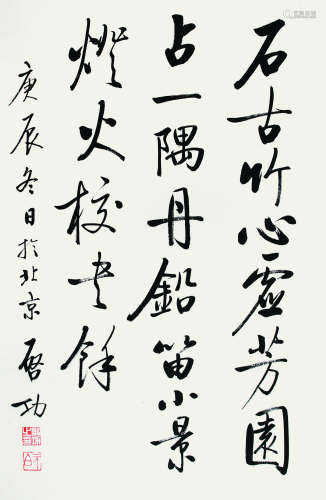 石古竹心虚芳園
占一隅丹鉛笛小景
燈火校书餘
庚辰冬日於北京 启功